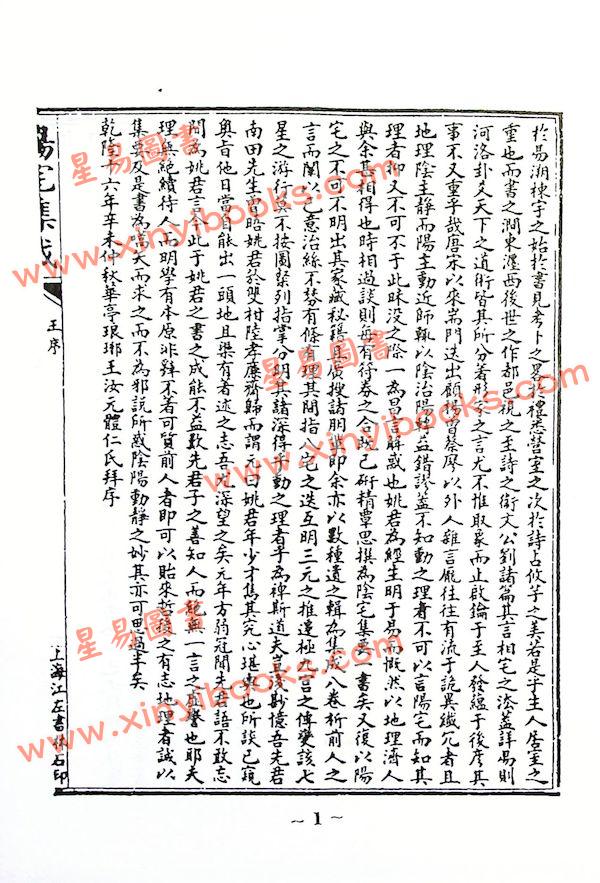 於易溯棟宇之始於書見考卜之畧於禮悉營室之次於詩占攸芋之美若是乎主人居室之
重也而書之澗東瀍西後世之作都邑視之至詩之衛文公劉諸篇其言相宅之法蓋詳易則
河洛卦爻天下之道術皆其所分着形家之言尤不惟取象而止啟鑰于主人發蘊于後彦其
事不又重乎哉唐宋以來耑門迭出顧楊曾蔡廖以外人雜言龐往往有流于詭異纖冗者且
地理陰主靜而陽主動近師輒以陰治陽錯謬蓋不知動之理者不可以言陽宅而知其
理者抑又不可不于此昧没之餘一為昌言解惑也姚君為經生明于易而慨然以地理濟人
與余甚相得也時相過談則每有符券之合故已研精覃思撰為陰宅集要一書矣又復以陽
宅之不可不明出其家藏秘籍具質搜諸朋舊即余亦以數種遺之輯為集成八卷析前人之
言而闡以己意治絲不棼有條有理其間指八宅之迭互明三元之推遷極九宫之傳變該七
星之游行莫不按圖縈列指掌分明其諸深得乎動之理者乎為裨斯道夫豈淺尠憶吾先君
南田先生曽晤姚君於雙柑陸孝廉齋歸而謂元曰姚君年少才雋其究心堪輿也所談已窺
奥旨他日當自能出一頭地且渠有著述之志吾以深望之矣元年方弱冠聞先君語不敢忘
間為姚君言今此于姚君之書之成能不益歎先君子之善知人而絶無一言之虚譽也耶夫
理無絶續待人而明學有本原非辨不著可質前人者即可以貽來哲後之有志地理者誠以
集要及是書為階天而求之而不為邪説所惑陰陽動靜之妙其亦可思過半矣
乾隆十六年辛未仲秋華亭琅琊王汝元體仁氏拜序
陽宅集成
王序
上海江左書林石印
~ 1 ~
星易圖書
www.xinyibooks.com
星易圖書
www.xinyibooks.com
星易圖書
www.xinyibooks.com